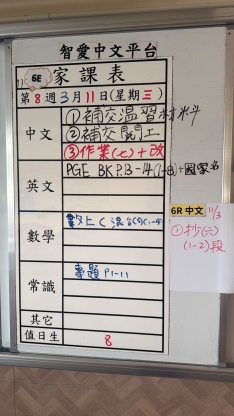 智愛中文平台
6E 家課表
第8週3月11日(星期三)
中文
①補交溫習材料
②補交閱工
③作業(七)+改
英文
PGE BK P.13-14(7-8)+國家名
數學
數上C
常識
專題P1-11
其它
值日生
8
6R 中文 11/3
①抄(六)
(1-2)段